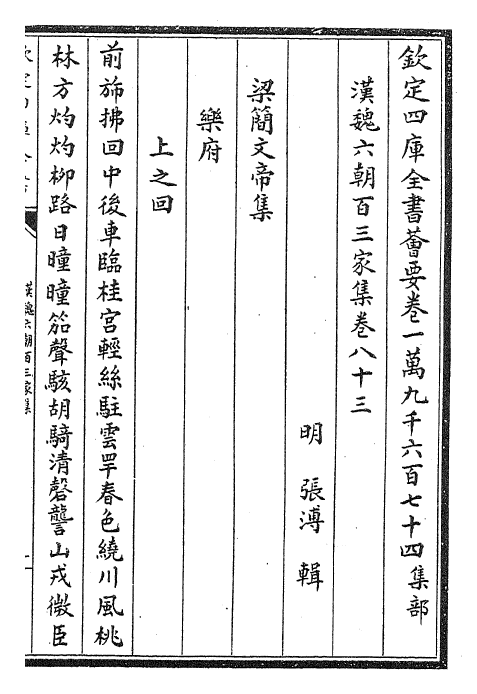 欽定四庫全書薈要卷一萬九千六百七十四集部
漢魏六朝百三家集卷八十三
明 張溥 輯
梁簡文帝集
樂府
上之回
前斾拂回中後車臨桂宮輕絲駐雲罕春色繞川風桃
林方灼灼柳路日曈曈笳聲駭胡騎清磬讋山戎微臣
漢魏六朝百三家集